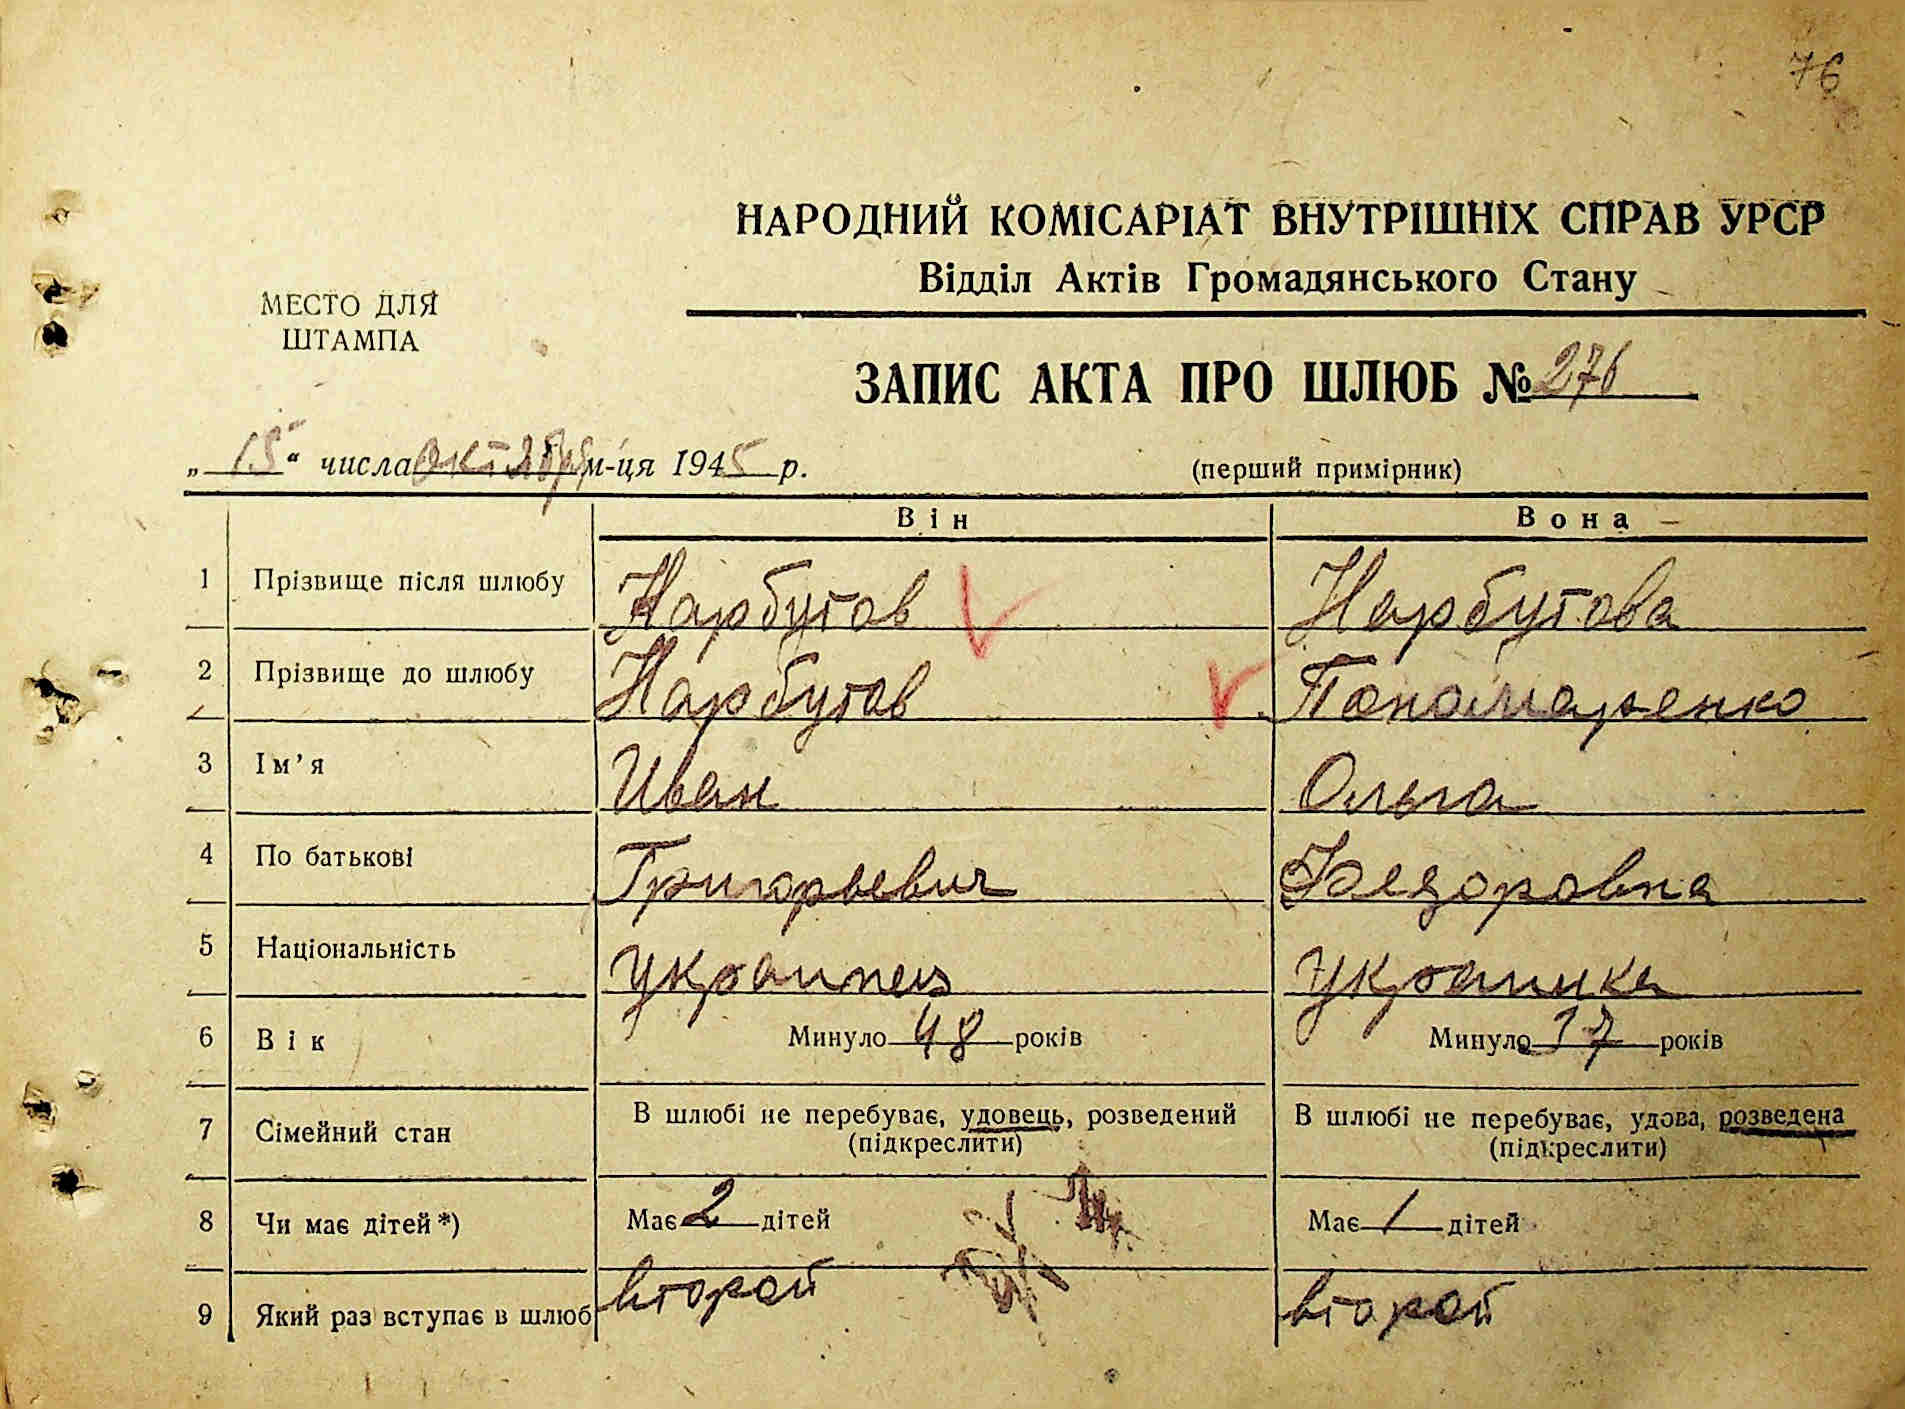 76
НАРОДНИЙ КОМІСАРІАТ ВНУТРІШНІХ СПРАВ УРСР
Відділ Актів Громадянського Стану
МЕСТО ДЛЯ
ШТАМПА
ЗАПИС АКТА ПРО ШЛЮБ № 276
„15“ числа октября м-ця 1945 р. (перший примірник)
Він Вона
1 Прізвище після шлюбу Нарбутов Нарбутова
2 Прізвище до шлюбу Нарбутов Пономаренко
3 Ім’я Иван Ольга
4 По батькові Григорьевич Федоровна
5 Національність украинец украинка
6 Вік Минуло 48 років Минуло 37 років
7 Сімейний стан В шлюбі не перебуває, удовець, розведений В шлюбі не перебуває, удова, розведена
(підкреслити) (підкреслити)
8 Чи має дітей*) Має 2 дітей Має 1 дітей
9 Який раз вступає в шлюб второй второй